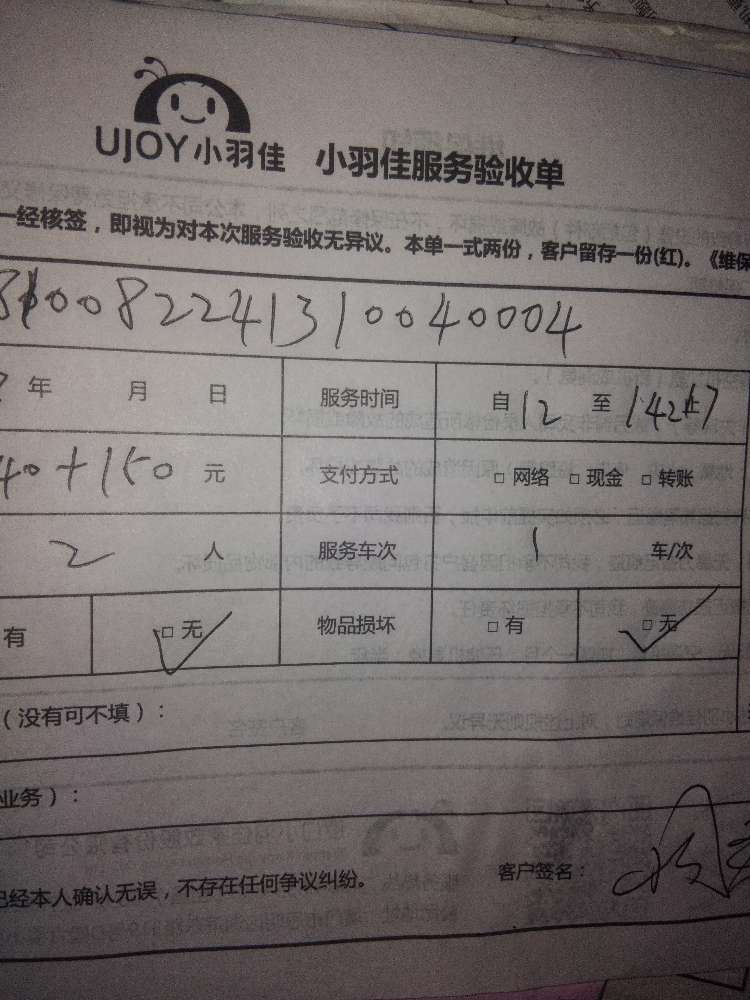 UJOY 小羽佳 小羽佳服务验收单
一经核签，即视为对本次服务验收无异议。本单一式两份，客户留存一份(红)。《维保
年 月 日 服务时间 自 12 至
40+150 元 支付方式 □ 网络 □ 现金 □ 转账
2 人 服务车次 1 车/次
有 □ 无 物品损坏 □ 有 □ 无
（没有可不填）：
业务）：
已经本人确认无误，不存在任何争议纠纷。 客户签名：